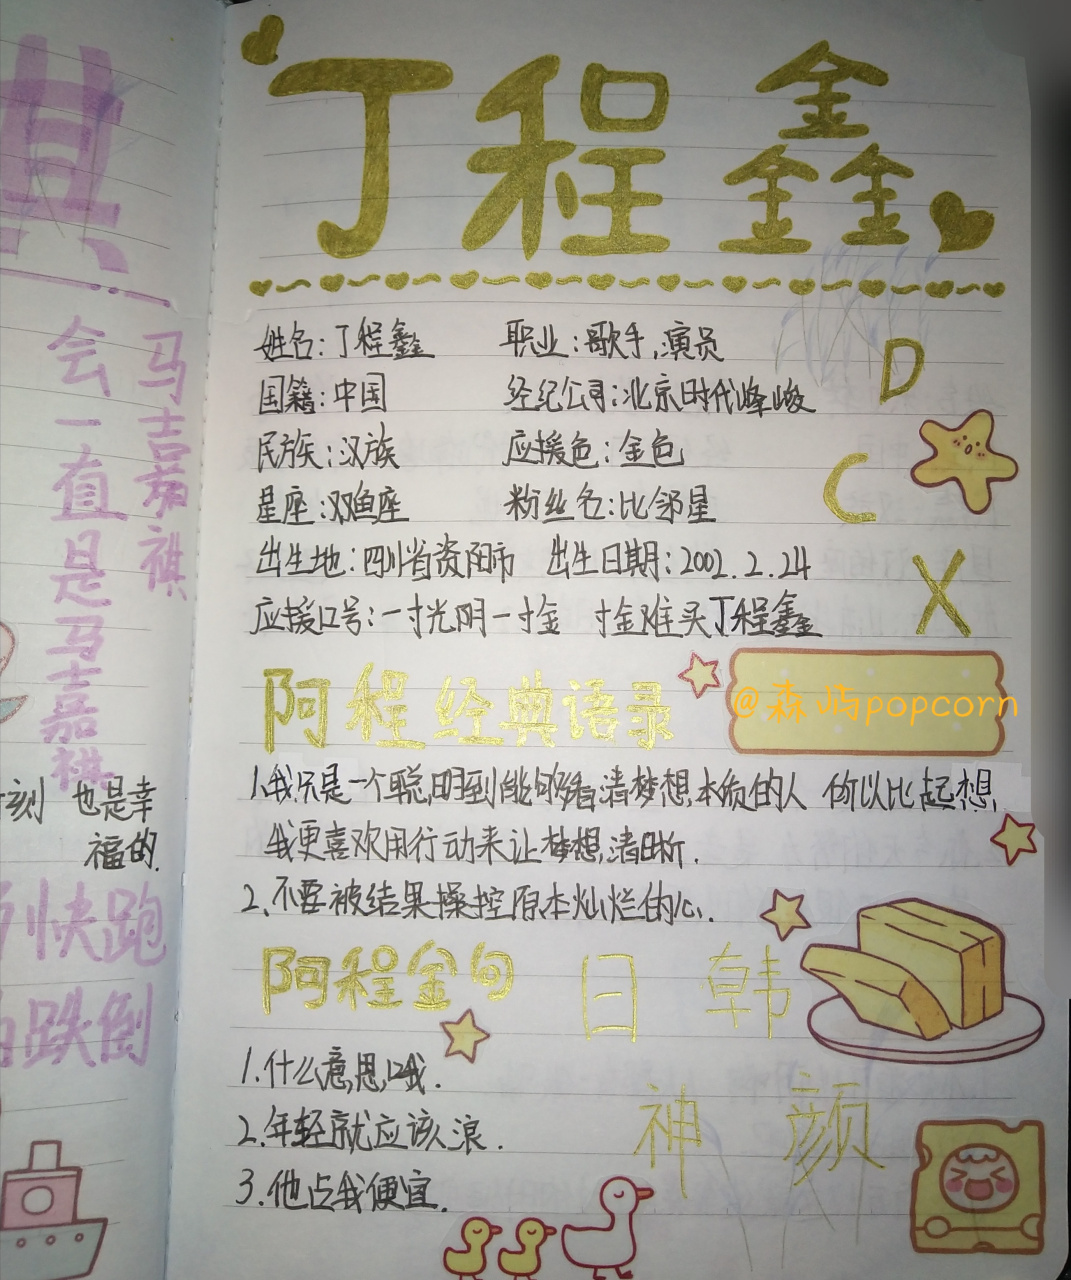 丁程鑫
姓名:丁程鑫 职业:歌手,演员
D
国籍:中国 经纪公司:北京时代峰峻
民族:汉族 应援色:金色
C
星座:双鱼座 粉丝名:比邻星
出生地:四川省资阳市 出生日期:2002.2.24
X
应援口号:一寸光阴一寸金 寸金难买丁程鑫
阿程经典语录
@森屿popcorn
1.我只是一个聪明到能够看清梦想本质的人 所以比起想,
我更喜欢用行动来让梦想清晰.
2.不要被结果操控原本灿烂的心.
阿程金句
日韩
神颜
1.什么意思哦.
2.年轻就应该浪.
3.他占我便宜.
马嘉祺
会一直是马嘉祺
刻 也是幸
福的.
快跑
跌倒